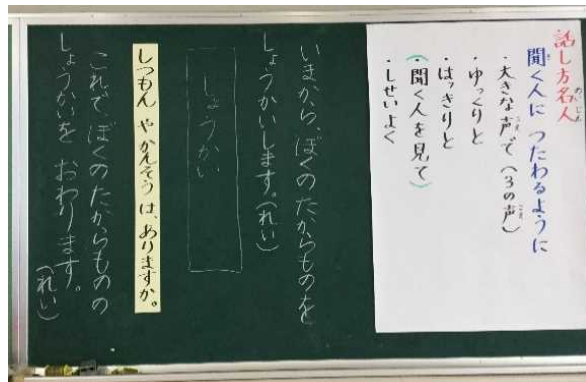 話し方名人
めいじん
聞く人に つたわるように
・大きな声で(3の声)
こえ
こえ
・ゆっくりと
・はっきりと
(・聞く人を見て)
・しせいよく
いまから、ぼくのたからものを
しょうかいします。(れい)
しょうかい
しつもん や かんそう は、ありますか。
これで、ぼくのたからものの
しょうかいを おわります。
(れい)